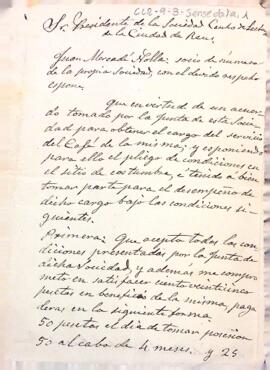 CLR-9-3-Sense data, 1
Sr. Presidente de la Sociedad Centro de Lectura
de la Ciudad de Reus,
Juan Mercadé Nolla: socio de número
de la propia Sociedad, con el devido respeto
espone:
Que en virtud de un acuer
do tomado por la Junta de esta Socie
dad para obtener el cargo del servicio
del Café de la misma; y esponiendo
para ello el pliego de condiciones en
el sitio de costumbre, e tenido á bien
tomar parte para el desempeño de
dicho cargo bajo las condiciones si
guientes.
Primera: Que acepto todas las con
diciones presentadas por la Junta de
dicha Sociedad, y ademas me compro
meto en satisfacer ciento veinticinco
pesetas en beneficio de la misma, paga
deras en la siguiente forma.
50 pesetas el dia de tomar posesion
50 al cabo de 4 meses. y 25